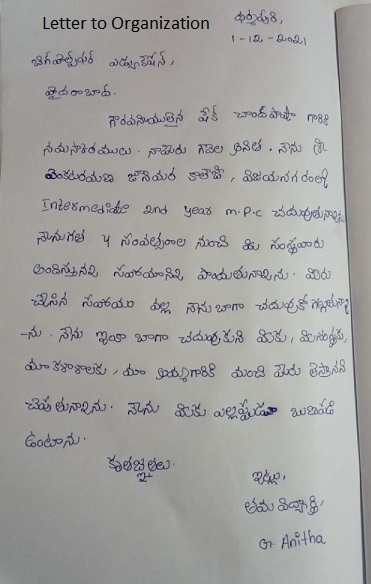 Letter to Organization
ధర్మపురి,
1-12-2021
బిగ్‌హెల్ప్‌ఫర్ ఎడ్యుకేషన్,
హైదరాబాద్.
గౌరవనీయులైన షేక్ చాంద్‌పాషా గారికి
నమస్కారములు. నాపేరు గెదెల అనిత. నేను శ్రీ
వెంకటరమణ జూనియర్ కాలేజీ, విజయనగరంలో
Intermediate 2nd year M.P.C చదువుతున్నాను.
నేనుగత 4 సంవత్సరాల నుంచి మీ సంస్థవారు
అందిస్తునన సహాయానిని పొందుతున్నాను. మీరు
చేసిన సహాయం వల్ల నేను బాగా చదువుకో గల్గుతున్నా
-ను. నేను ఇంకా బాగా చదువుకుని మీకు, మీసంస్థకు,
మా కళాశాలకు, మా అమ్మగారికి మంచి పేరు తెస్తానని
చెపుతున్నాను. నేను మీకు ఎల్లప్పుడు ఋణపడి
ఉంటాను.
కృతజ్ఞతలు.
ఇట్లు,
తమ విద్యార్థి,
G. Anitha